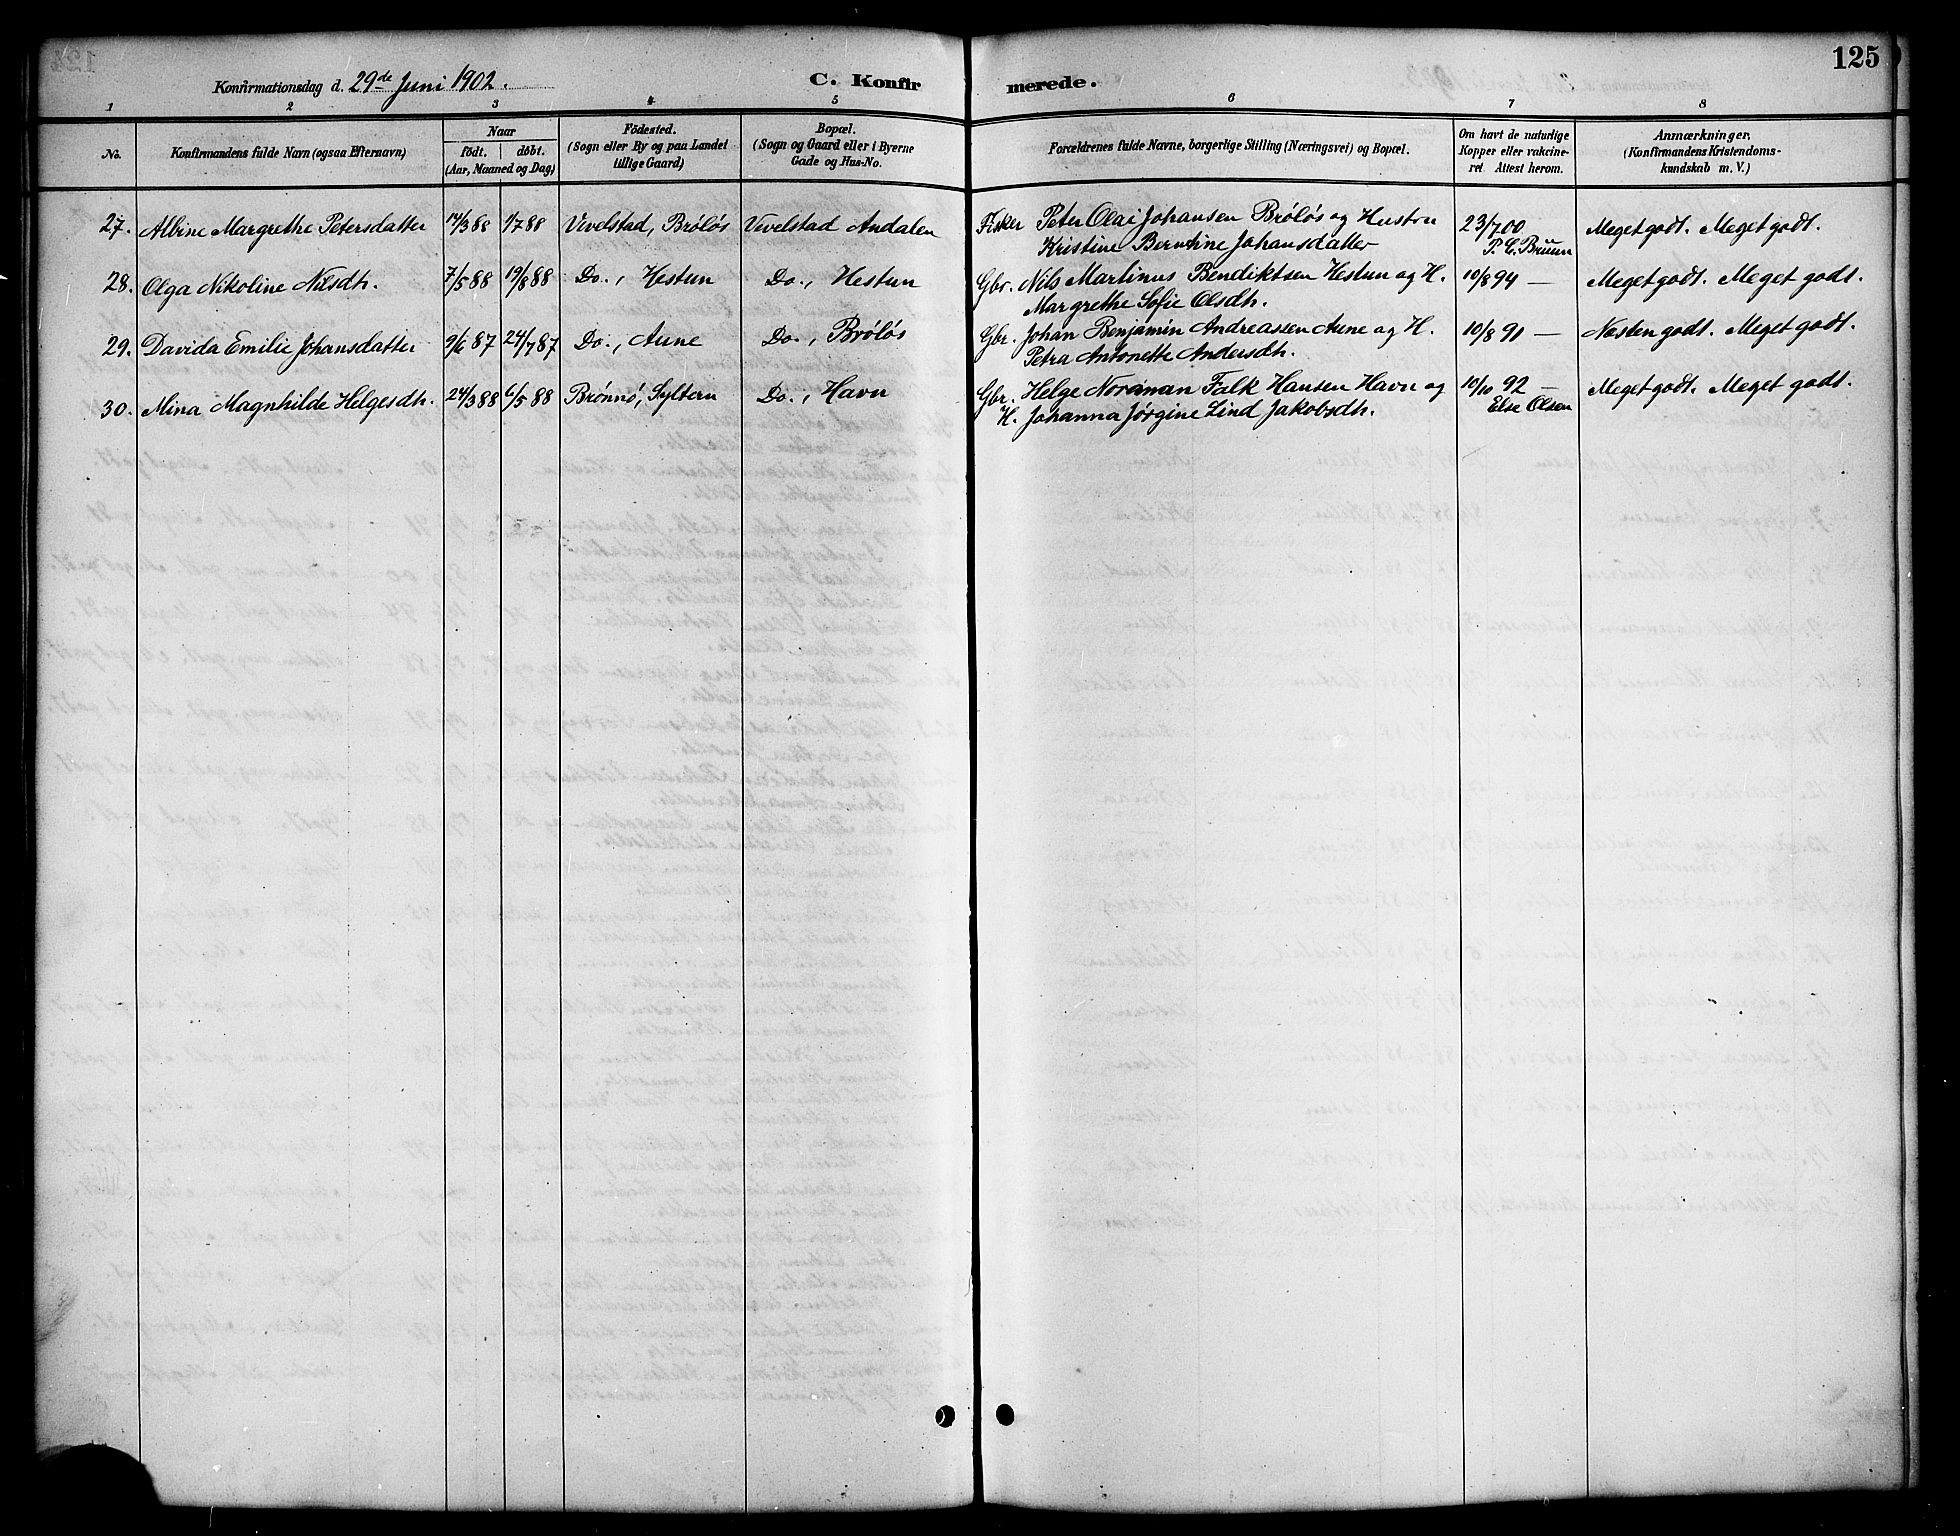 125
Konfirmationsdag d. 29de Juni 1902. C. Konfirmerede.
1 2 3 4 5 6 7 8
No. Konfirmandens fulde Navn (ogsaa Efternavn) Naar födt. döbt. (Aar, Maaned og Dag) Födested. (Sogn eller By og paa Landet tillige Gaard) Bopæl. (Sogn og Gaard eller i Byerne Gade og Hus-No. Forældrenes fulde Navne, borgerlige Stilling (Næringsvei) og Bopæl. Om havt de naturlige Kopper eller vakcineret. Attest herom. Anmærkninger. (Konfirmandens Kristendomskundskab m. V.)
27. Albine Margrethe Petersdatter 14/3 88 1/7 88 Vevelstad, Bröløs Vevelstad Andalen Fisker Peter Olai Johansen Bröløs og Hustru 23/7 00 Meget godt. Meget godt.
Kristine Berntine Johansdatter P. C. Bruun
28. Olga Nikoline Nilsdtr. 7/5 88 19/8 88 Do., Hestun Do., Hestun Gbr. Nils Martinus Bendiktsen Hestun og H. 10/8 94 — Meget godt. Meget godt.
Margrethe Sofie Olsdtr.
29. Davida Emilie Johansdatter 9/6 87 24/7 87 Do., Aune Do., Bröløs Gbr. Johan Benjamin Andreassen Aune og H. 10/8 91 — Næsten godt. Meget godt.
Petra Antonette Andersdtr.
30. Mina Magnhilde Helgesdtr. 24/3 88 6/5 88 Brønnø, Syltern Do., Havn Gbr. Helge Norman Falk Hansen Havn og 10/10 92 — Meget godt. Meget godt.
H. Johanna Jørgine Lind Jakobsdtr. Else Olsen